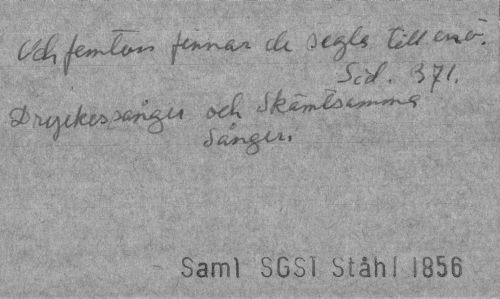 Och femton finnar de segla till en ö.
Sid. 371.
Dryckessånger och Skämtsamma
Sånger.
Saml SGS1 Ståhl 1856